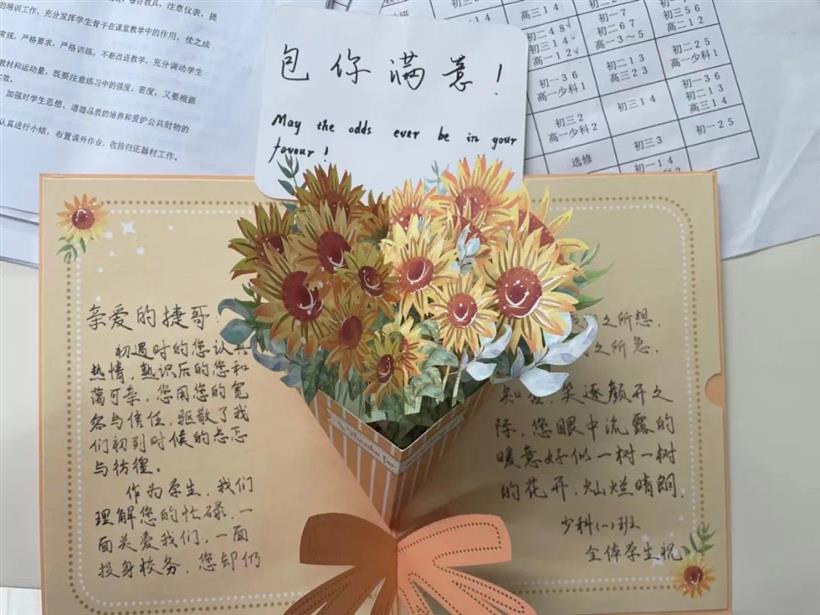 的培训工作，充分发挥学生骨干在课堂教学中的作用，使之成
常规，严格要求，严格训练，不断改进教学，充分调动学生
教材和运动量，既要注意练习中的强度，密度，又要根据
加强对学生思想、道德品质的培养和爱护公共财物的
认真进行小结，布置课外作业，收拾归还器材工作。
高三14
初一7
初二48
初二67
初二25
高三14
高一3～5
高一少科1
高一12
初二13
初一36
高三23
初一36
高一少科1
初三14
初二13
初三14
高三12
初三2
高一少科2
初三3
初一25
选修
初一14
包你满意！
May the odds ever be in your
favour!
亲爱的捷哥
初遇时的您认真
热情，熟识后的您和
蔼可亲，您用您的宽
容与信任，驱散了我
们初到时候的忐忑
与彷徨。
作为学生，我们
理解您的忙碌，一
面关爱我们，一面
投身校务，您却仍
之所想，
之所急，
笑逐颜开之
际，您眼中流露的
暖意好似一树一树
的花开，灿烂晴朗。
少科（一）班
全体学生祝